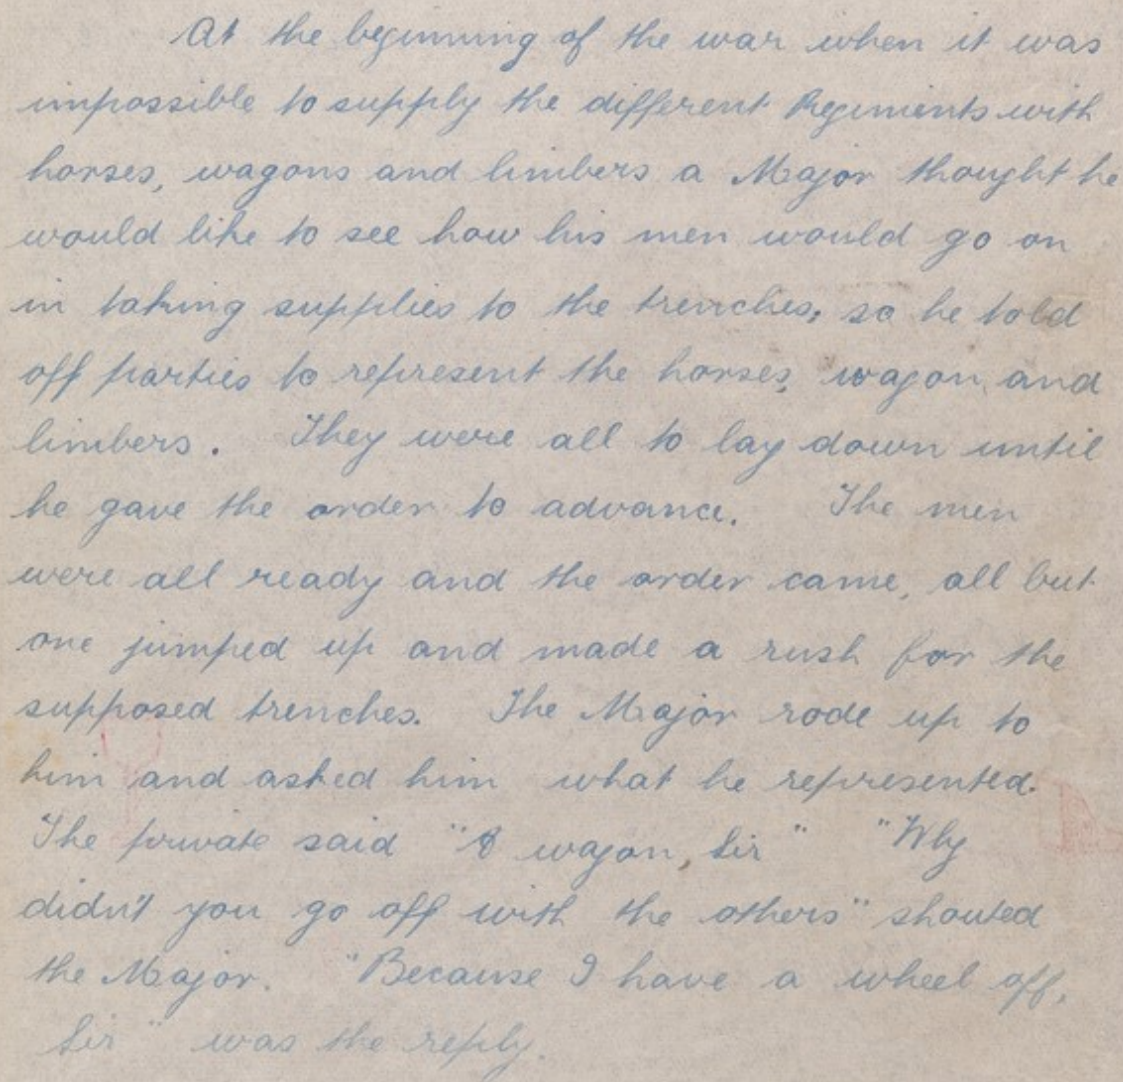 At the beginning of the war when it was
impossible to supply the different Regiments with
horses, wagons and limbers a Major thought he
would like to see how his men would go on
in taking supplies to the trenches, so he told
off parties to represent the horses, wagon, and
limbers. They were all to lay down until
he gave the order to advance. The men
were all ready and the order came, all but
one jumped up and made a rush for the
supposed trenches. The Major rode up to
him and asked him what he represented.
The private said "A wagon, Sir" "Why
didn't you go off with the others" shouted
the Major. "Because I have a wheel off,
Sir" was the reply.